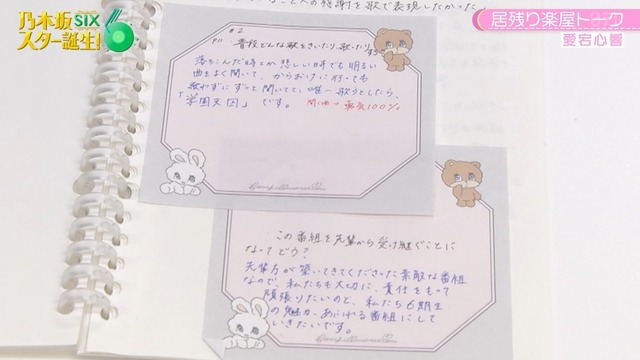 乃木坂SIX
スター誕生!
6
居残り楽屋トーク
愛宕心響
の感謝を歌で表現したかった
#2
普段どんな歌をきいたり、歌ったり
落ちこんだ時とか悲しい時でも明るい
曲をよく聞いて、からおけに行っても
歌わずにずっと聞いてて、唯一歌うとしたら、
「学園天国」です。
勇気100%
この番組を先輩から受け継ぐことに
なってどう?
先輩方が築いてきてくださった素敵な番組
なので、私たちも大切に、責任をもって
頑張りたいのと、私たち6期生
の魅力あふれる番組にして
いきたいです。